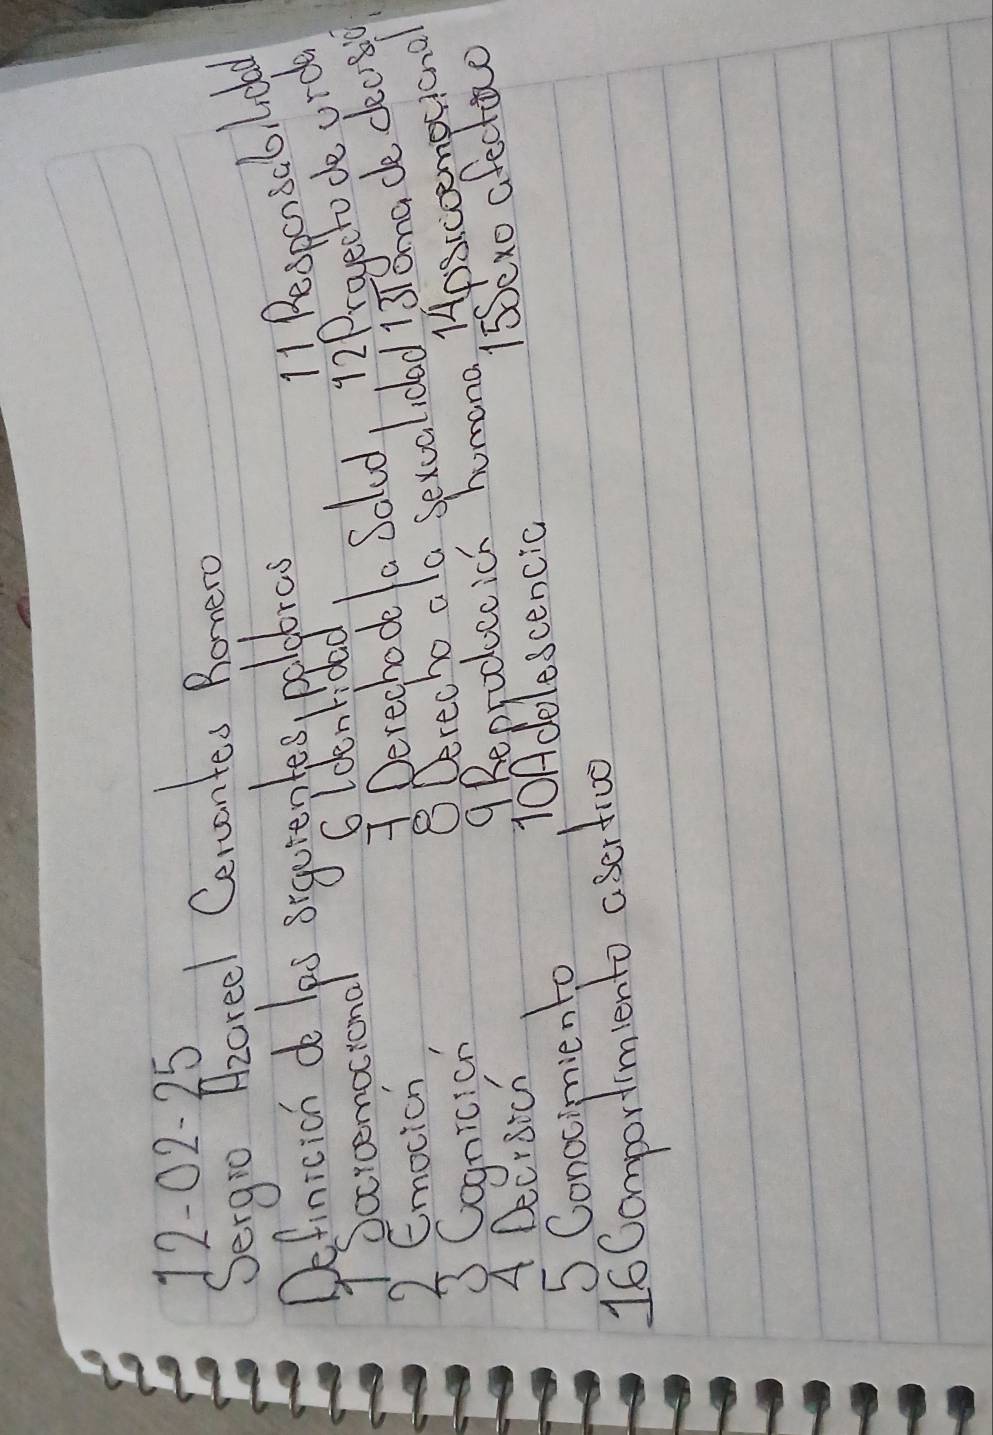 12-02-25
Sergio Azareel Cervantes Romero
Definición de las siguientes palabras
1 Socioemocional
2 Emoción
3 Cognición
4 Decisión
5 Conocimiento
16 Comportimiento asertivo
6 Identidad
7 Derecho de la Salud
8 Derecho a la sexualidad
9 Reproducción humana
10 Adolescencia
11 Responsabilidad
12 Proyecto de vida
13 Toma de decisió
14 psicoemocional
15 Sexo afectivo